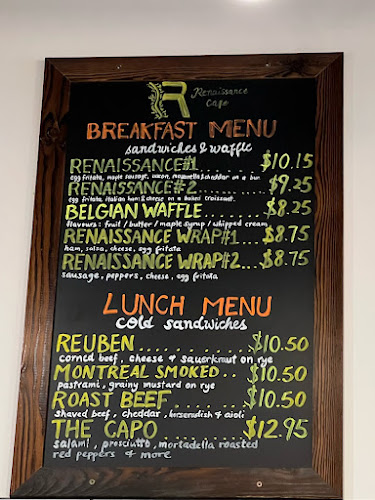 R Renaissance
Cafe
BREAKFAST MENU
sandwiches & waffle
RENAISSANCE#1 ... $10.15
egg fritata, maple sausage, bacon, mozzarella & cheddar on a bun
RENAISSANCE#2 ............ $9.25
egg fritata, italian ham & cheese on a baked croissant.
BELGIAN WAFFLE ...... $8.25
flavours: fruit / butter / maple syrup / whipped cream
RENAISSANCE WRAP#1 ... $8.75
ham, salsa, cheese, egg fritata
RENAISSANCE WRAP#2 ... $8.75
sausage, peppers, cheese, egg fritata
LUNCH MENU
cold sandwiches
REUBEN ........... $10.50
corned beef, cheese & sauerkraut on rye
MONTREAL SMOKED .. $10.50
pastrami, grainy mustard on rye
ROAST BEEF ....... $10.50
shaved beef, cheddar, horseradish & aioli
THE CAPO ........ $12.95
salami, prosciutto, mortadella roasted
red peppers & more